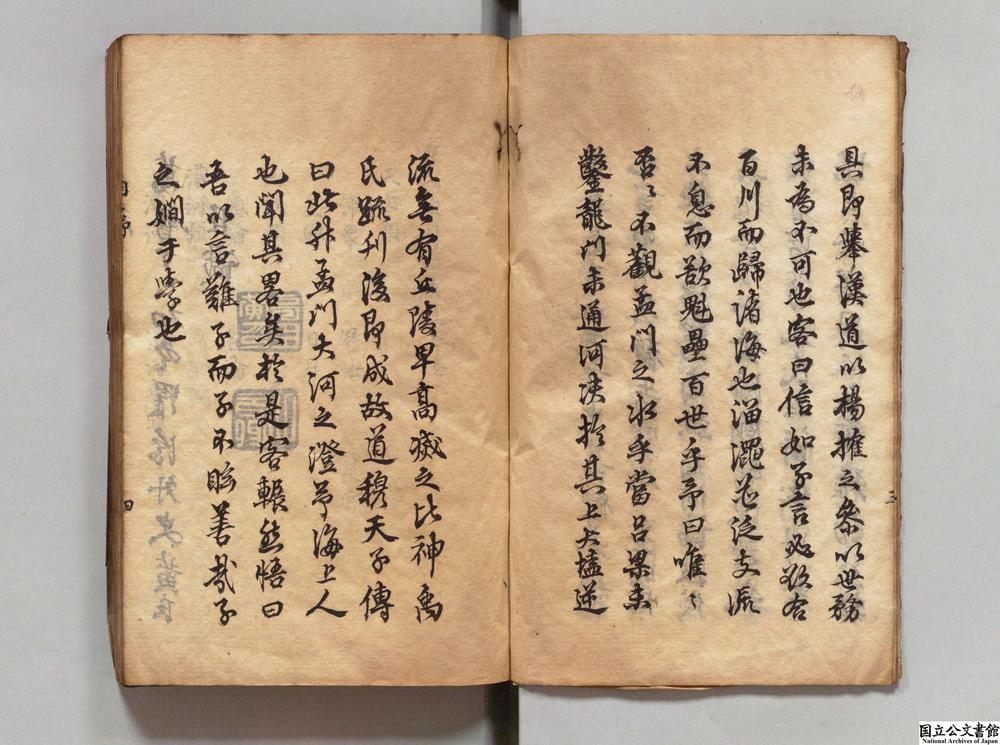 具即舉漢道以楊搉之叅以世務
未為不可也客曰信如子言必欲合
百川而歸諸海也淄澠並泛支派
不息而欲魁壘百世乎予曰唯〻
否〻不觀孟門之水乎當呂梁未
鑿龍門未通河決於其上大搕逆
流無有丘陵早高滅之比神禹
氏疏刊後即成故道穆天子傳
曰北升孟門大河之澄予海上人
也聞其畧矣於是客囅然悟曰
吾以言難子而子不眩善哉子
之嫺于學也
四
三
国立公文書館
National Archives of Japan